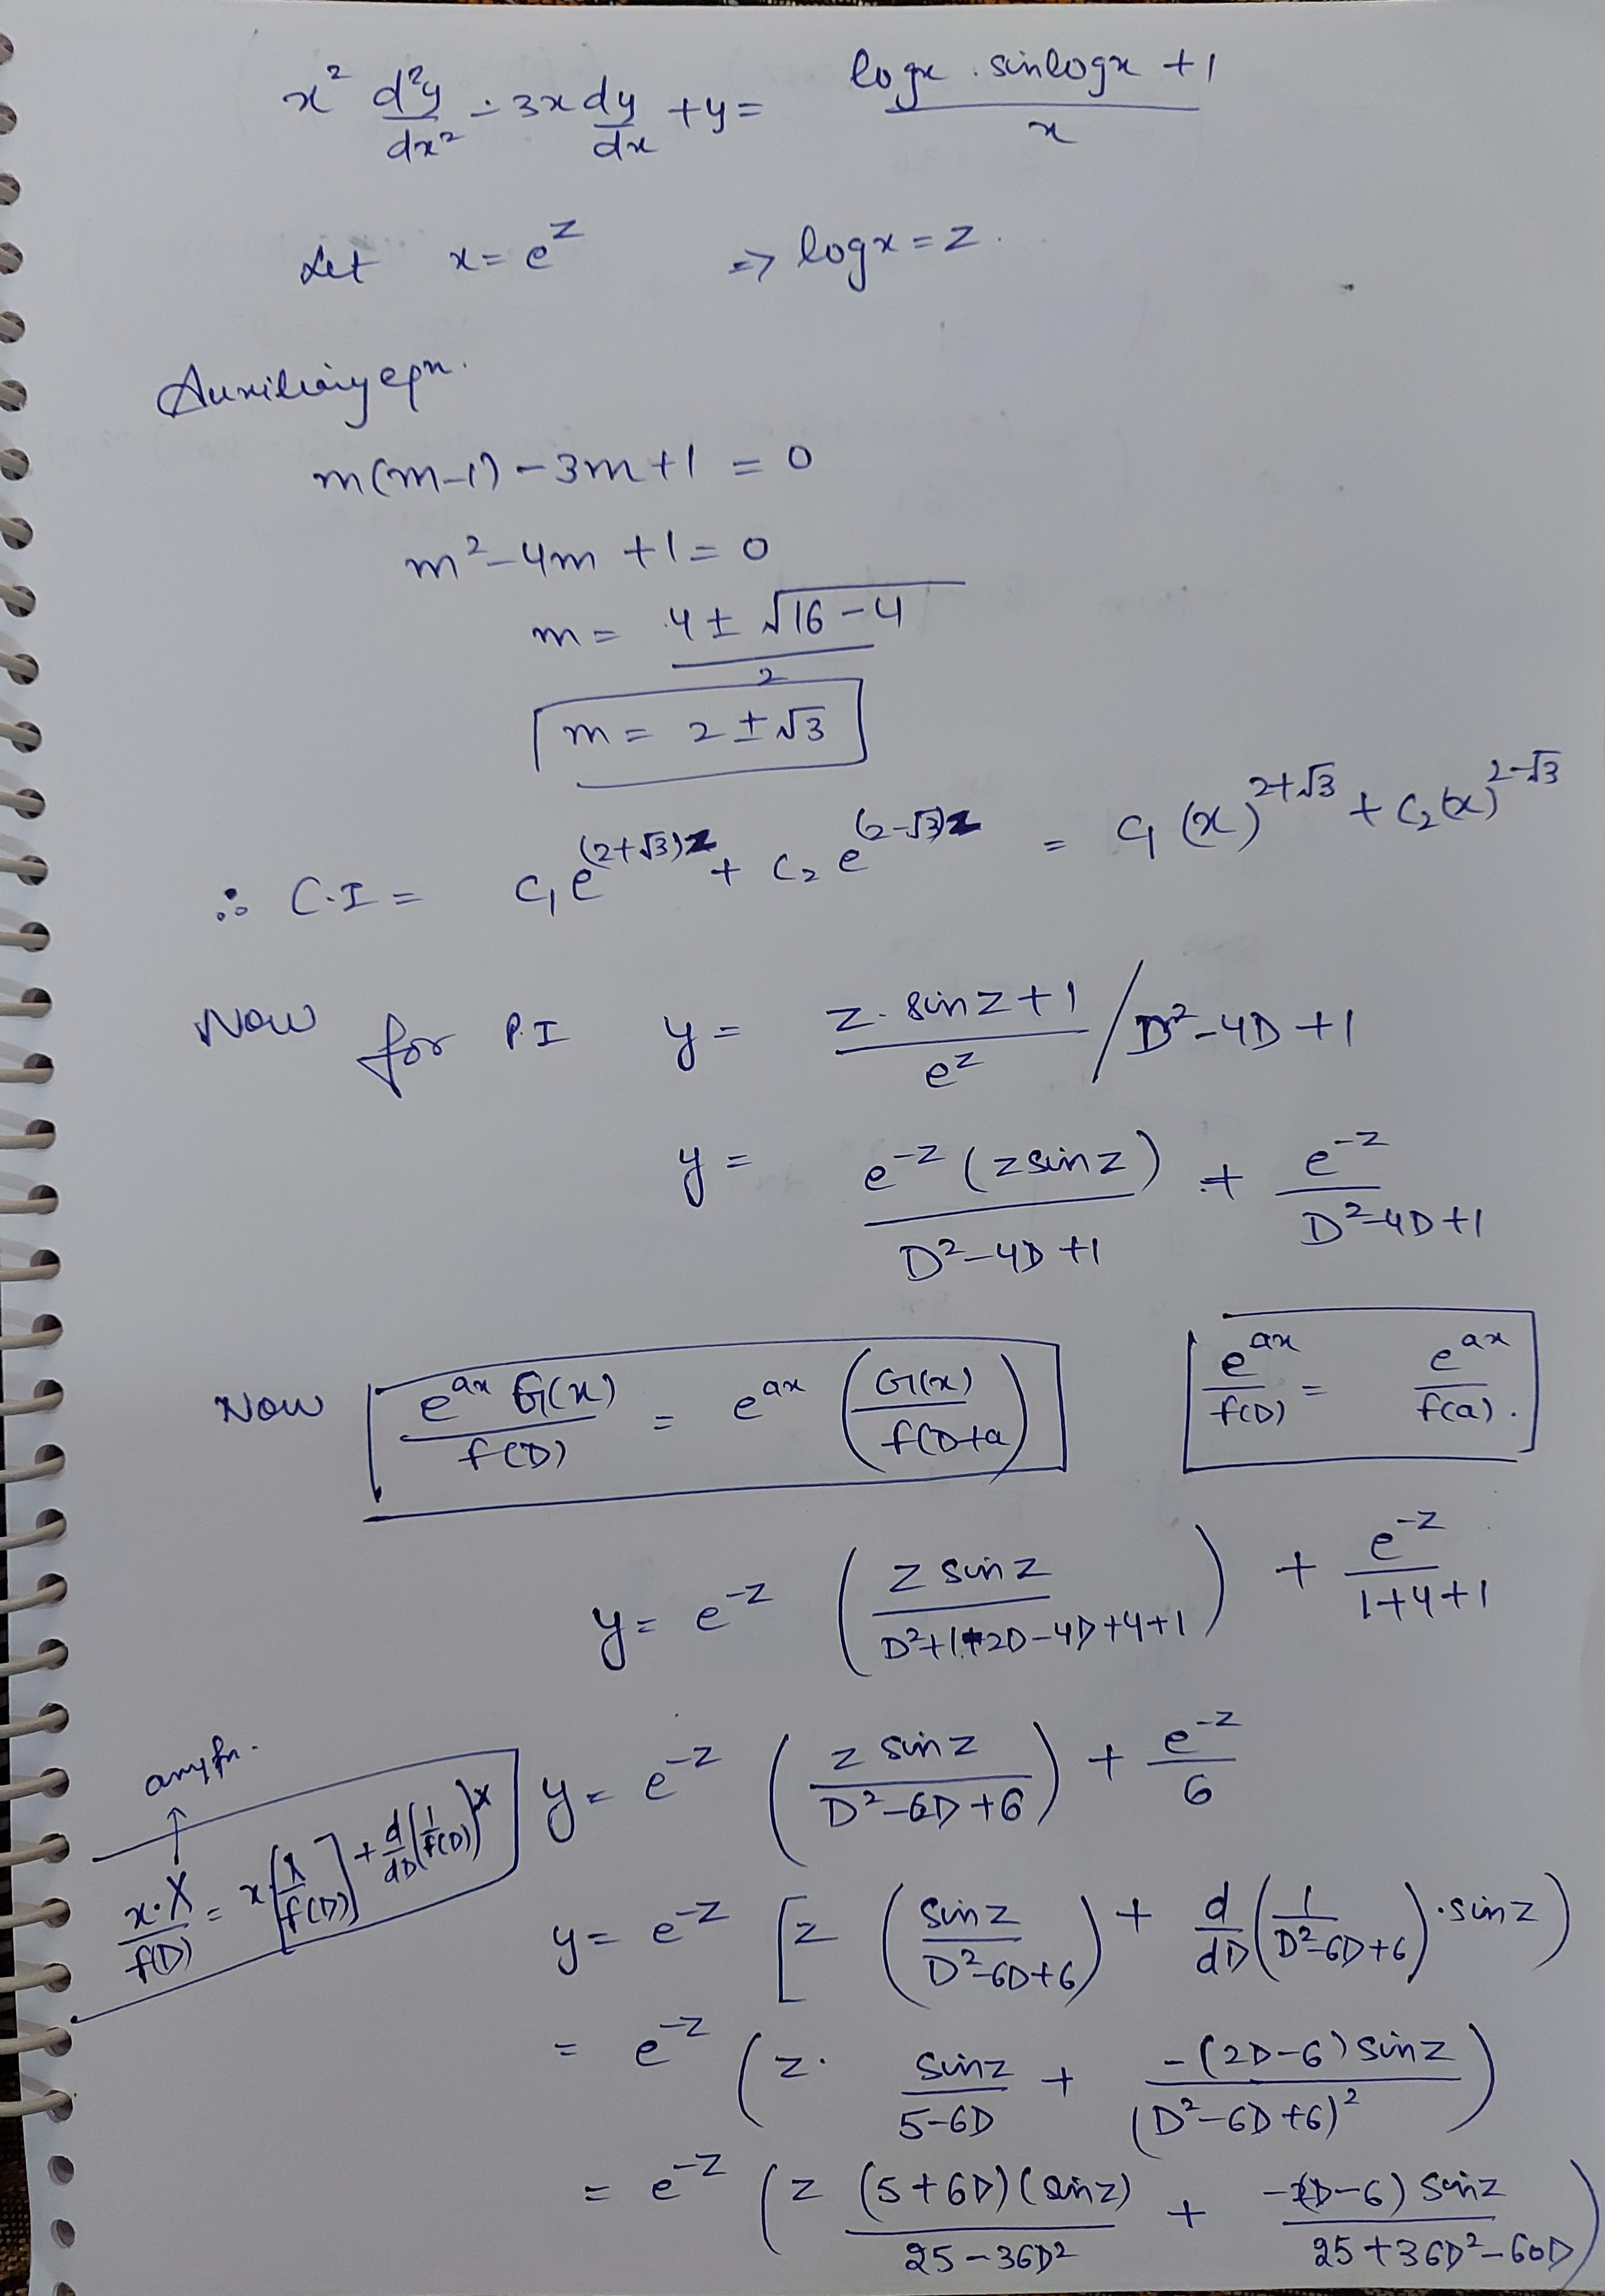 x² d²y/dx² - 3x dy/dx + y = (logx . sinlogx + 1)/x
Let x = e^z => logx = z.
Auxiliary eqn.
m(m-1) - 3m + 1 = 0
m² - 4m + 1 = 0
m = (4 ± √(16-4))/2
m = 2 ± √3
∴ C.I = C₁e^((2+√3)z) + C₂e^((2-√3)z) = C₁(x)^(2+√3) + C₂(x)^(2-√3)
Now for P.I y = (z. sinz + 1)/e^z / D² - 4D + 1
y = e^-z (z sinz)/(D² - 4D + 1) + e^-z/(D² - 4D + 1)
Now e^ax G(x)/f(D) = e^ax (G(x)/f(D+a)) e^ax/f(D) = e^ax/f(a).
y = e^-z (z sinz/(D²+1+2D-4D+4+1)) + e^-z/(1+4+1)
any fn.
y = e^-z (z sinz/(D²-6D+6)) + e^-z/6
x.X/f(D) = x[X/f(D)] + d/dD(1/f(D))X
y = e^-z [z (sinz/(D²-6D+6)) + d/dD(1/(D²-6D+6)).sinz)
= e^-z (z. sinz/(5-6D) + -(2D-6) sinz/(D²-6D+6)²)
= e^-z (z (5+6D)(sinz)/(25-36D²) + -2D-6) sinz/(25+36D²-60D))